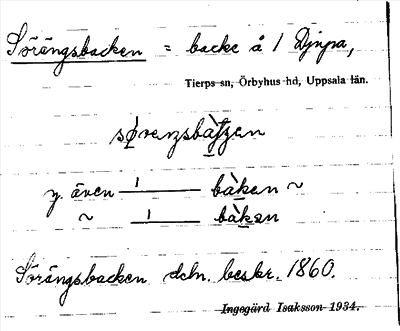 Sörängsbacken = backe å 1 Djupa,
Tierps sn, Örbyhus hd, Uppsala län.
y. även —ı— bàken ~
~ —ı— bàkan
Sörängsbacken dcln. beskr. 1860.
Ingegärd Isaksson 1934.